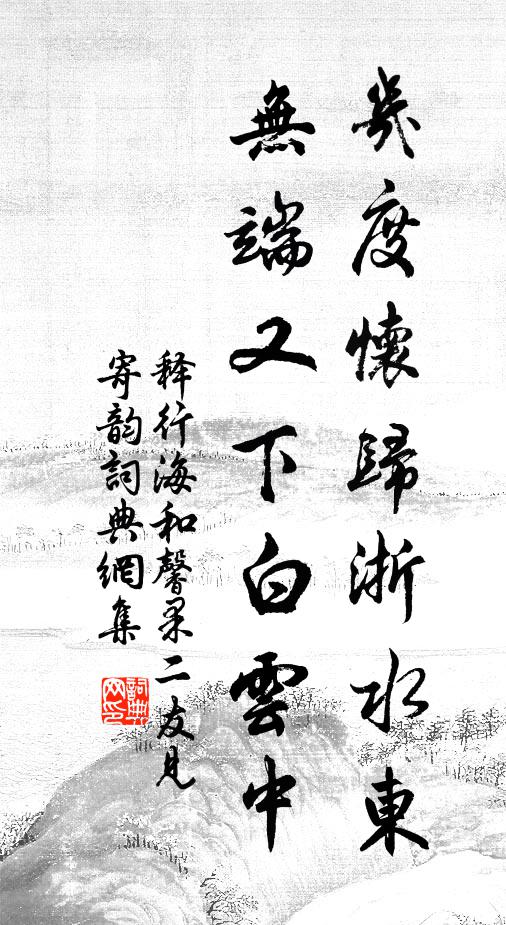 幾度懷歸浙水東
無端又下白雲中
释行海和馨杲二友見
寄韵詞典網集
詞典网印